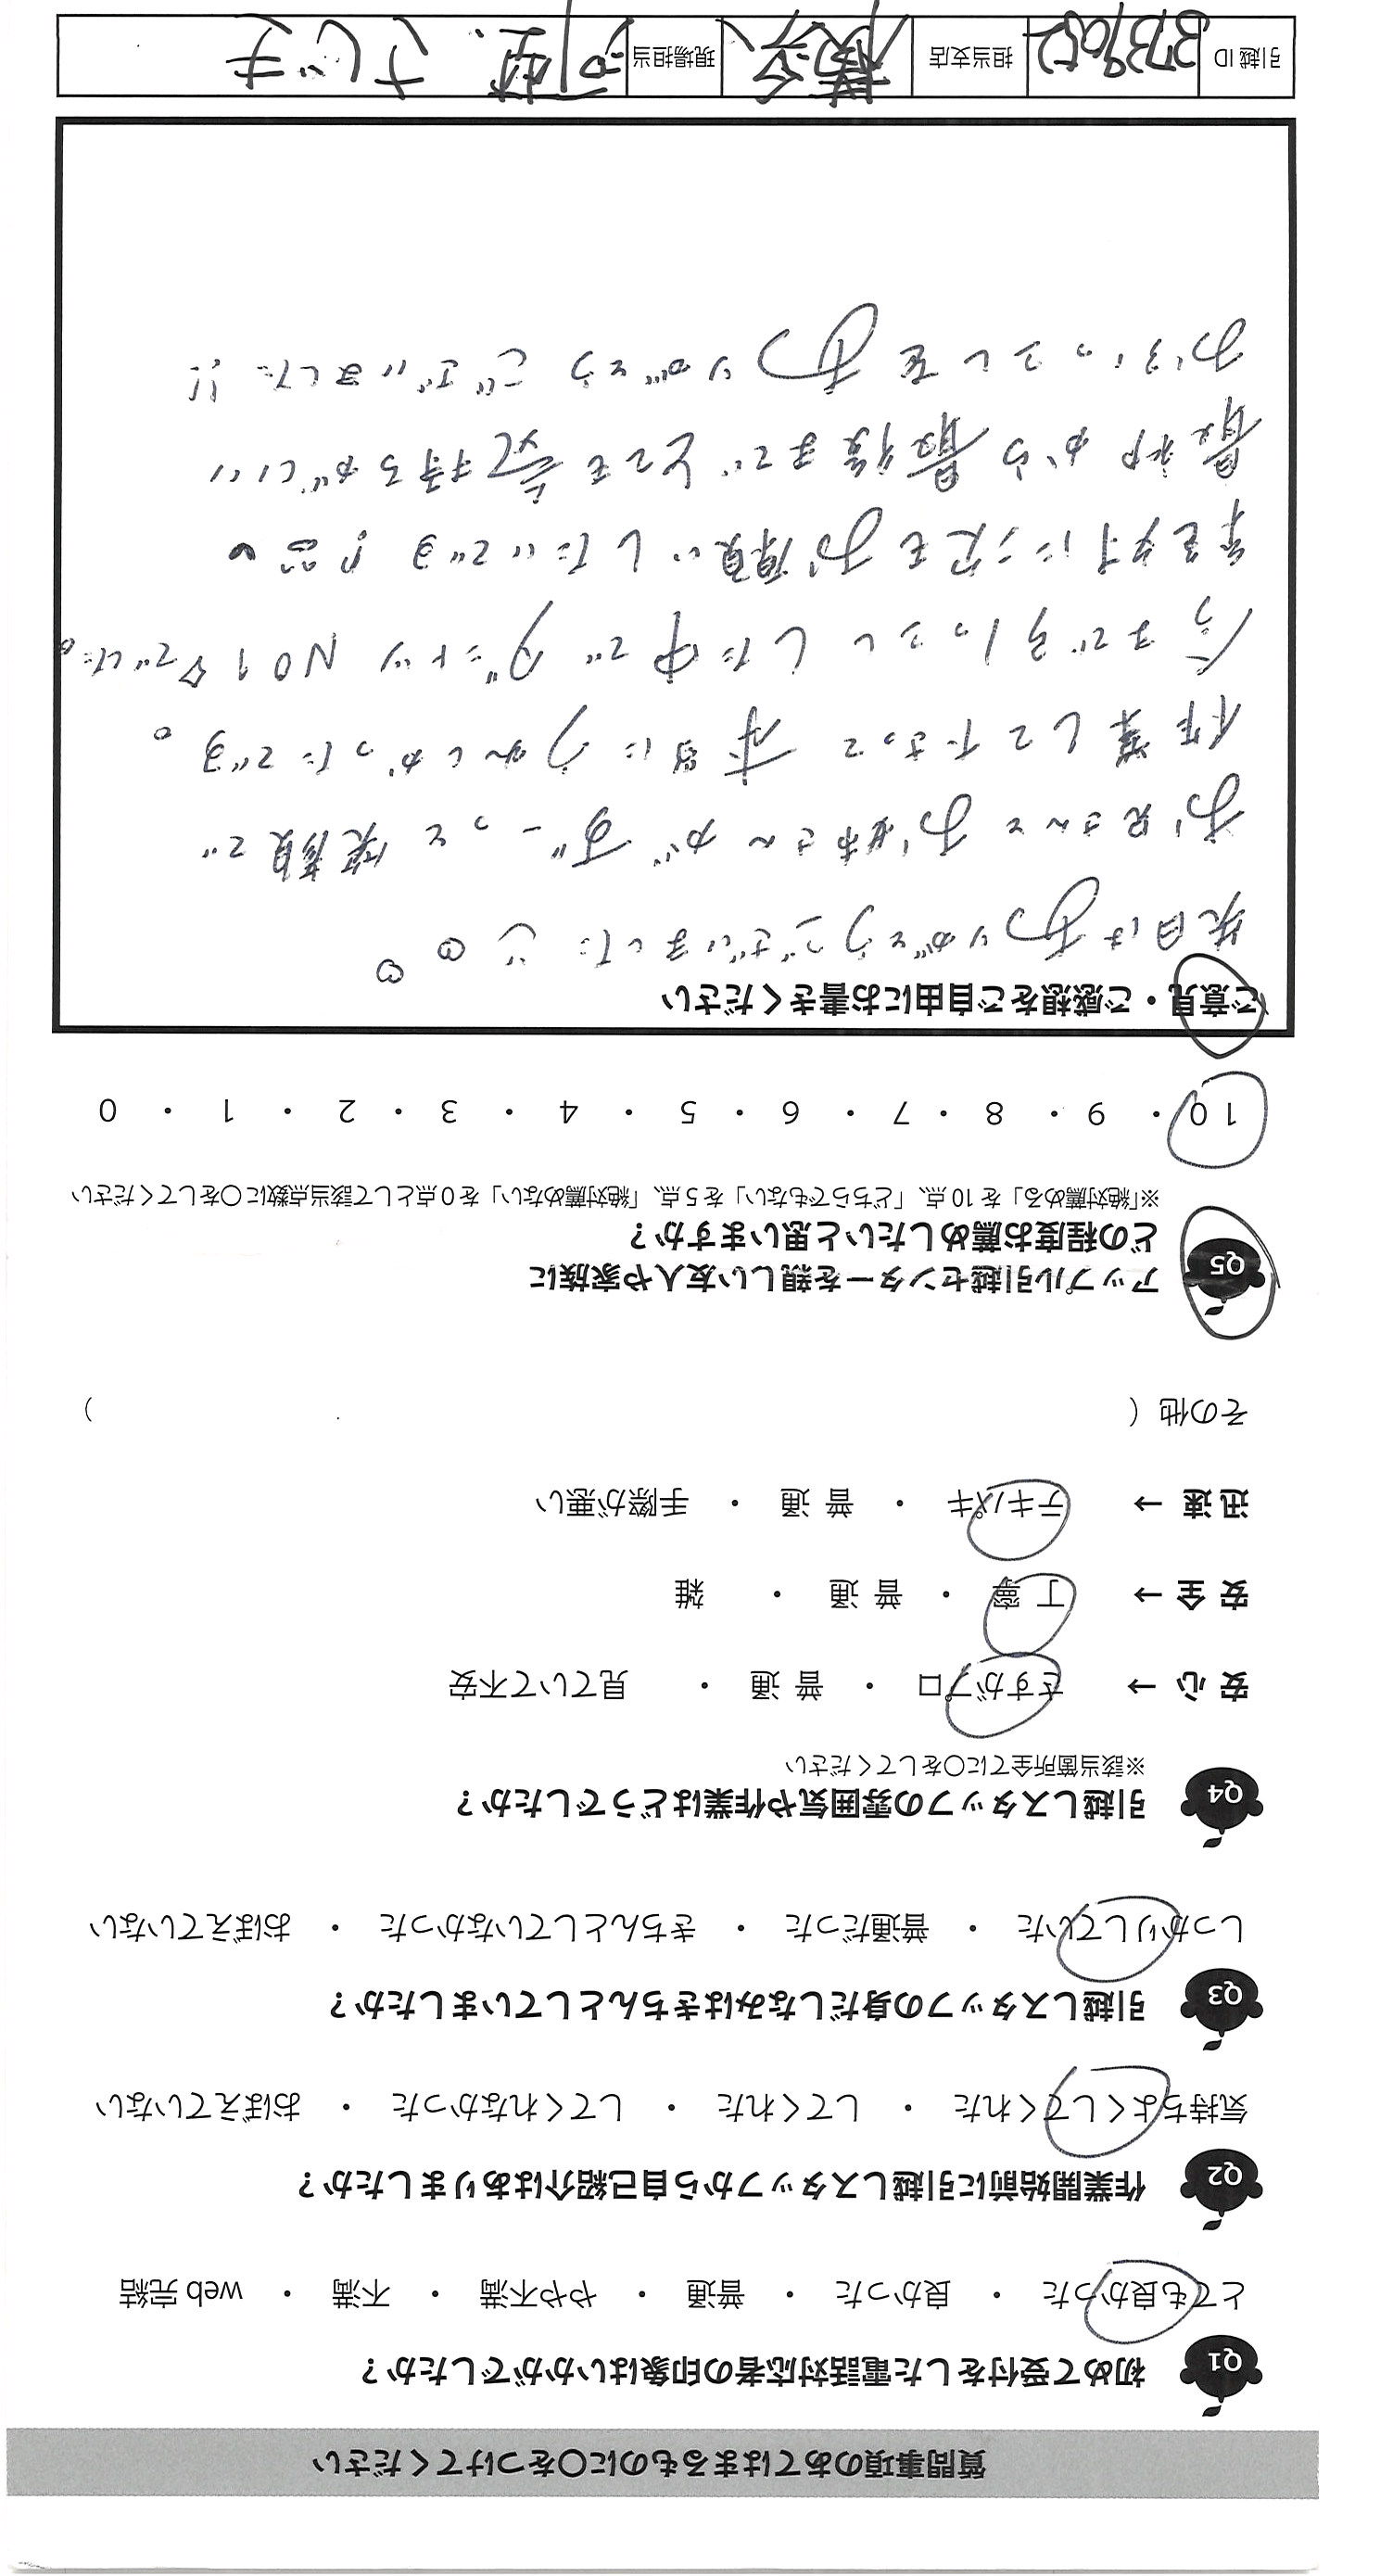 質問事項のあてはまるものに〇をつけてください
Q1 初めて受付をした電話対応者の印象はいかがでしたか？
とても良かった ・ 良かった ・ 普通 ・ やや不満 ・ 不満 ・ web完結
Q2 作業開始前に引越しスタッフから自己紹介はありましたか？
気持ちよくしてくれた ・ してくれた ・ してくれなかった ・ おぼえていない
Q3 引越しスタッフの身だしなみはきちんとしていましたか？
しっかりしていた ・ 普通だった ・ きちんとしていなかった ・ おぼえていない
Q4 引越しスタッフの雰囲気や作業はどうでしたか？
※該当箇所全てに〇をしてください
安心 → さすがプロ ・ 普通 ・ 見ていて不安
安全 → 丁寧 ・ 普通 ・ 雑
迅速 → テキパキ ・ 普通 ・ 手際が悪い
その他（ ）
Q5 アップル引越センターを親しい友人や家族に
どの程度お薦めしたいと思いますか？
※「絶対薦める」を10点、「どちらでもない」を5点、「絶対薦めない」を0点として該当点数に〇をしてください
10 ・ 9 ・ 8 ・ 7 ・ 6 ・ 5 ・ 4 ・ 3 ・ 2 ・ 1 ・ 0
ご意見・ご感想をご自由にお書きください
先日はありがとうございました
お兄さんとお姉さんがずーっと笑顔で
作業して下さって本当にうれしかったです。
今まで引っこしした中でダントツNO1でした。
絶対に次もお願いしたいです!!
最初から最後までとても気持ちがいい
お引っこしをありがとうございました!!
引越ID 3739052 担当支店 横浜 現場担当